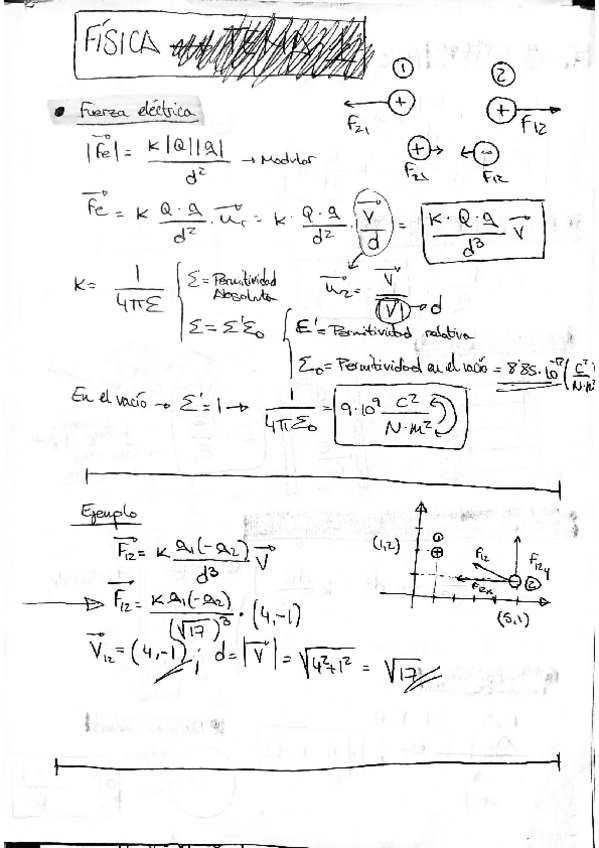 FÍSICA
① ②
+ +
F₂₁ F₁₂
• Fuerza eléctrica
+ -
F₂₁ F₁₂
|F⃗e| = K|Q||q| / d² → Modular
F⃗e = K Q·q / d² · u⃗r = K · Q·q / d² · v⃗ / d = K·Q·q / d³ v⃗
u⃗r = v⃗ / |v⃗| → d
K = 1 / 4πε
ε = Permitividad Absoluta
ε = ε'ε₀
ε' = Permitividad relativa
ε₀ = Permitividad en el vacío = 8'85·10⁻¹² (C² / N·m²
En el vacío → ε' = 1 → 1 / 4πε₀ = 9·10⁹ C² / N·m²
Ejemplo
F⃗₁₂ = K q₁(-q₂) / d³ v⃗
(1,2) ① +
F₁₂ F₁₂y
F₁₂x - ②
(5,1)
→ F⃗₁₂ = K q₁(-q₂) / (√17)³ · (4,-1)
V⃗₁₂ = (4,-1) ; d = |v⃗| = √4²+1² = √17